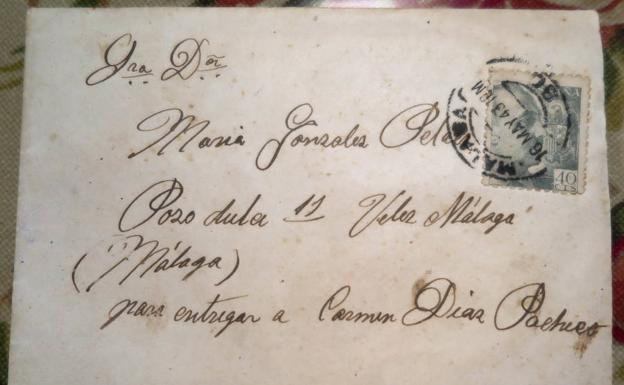 Sra Dña
Maria Gonzales
Pozo dulce 11 Velez Málaga
(Málaga)
para entregar a Carmen Diaz Pacheco
MALAGA
16 MAY 43 12M
40
CTS